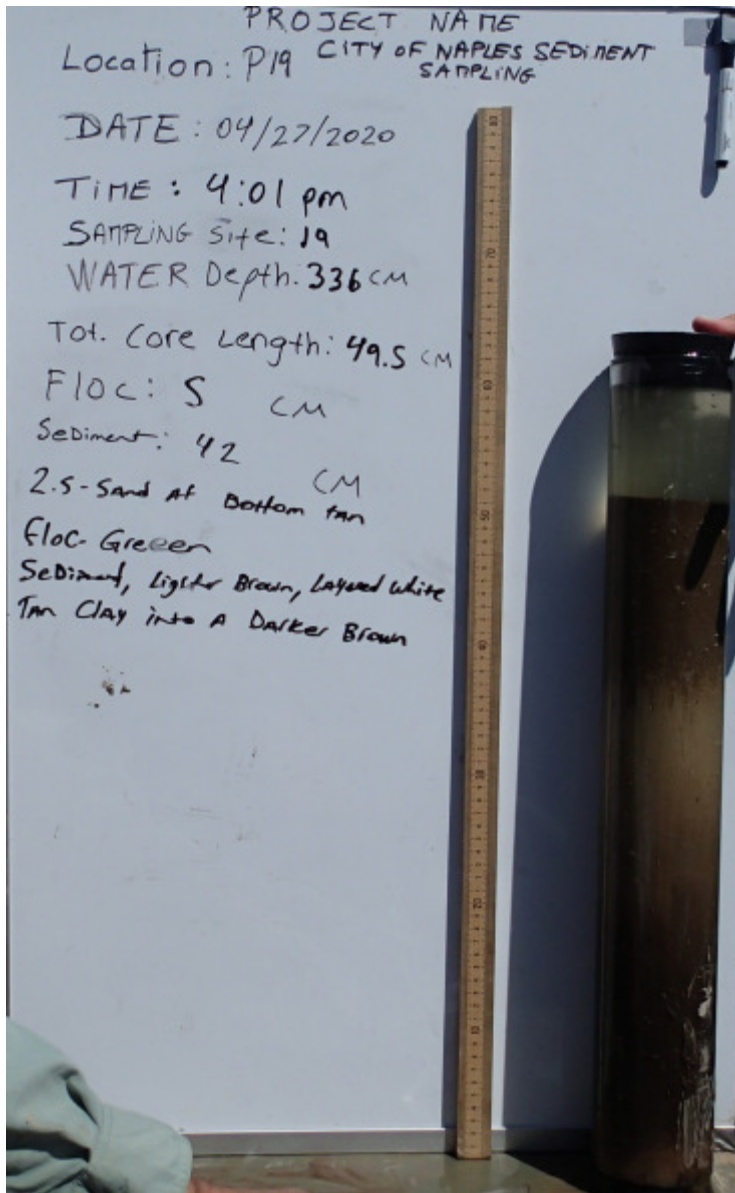 PROJECT NAME
Location: P19 CITY OF NAPLES SEDIMENT
SAMPLING
DATE: 04/27/2020
TIME: 4:01 pm
SAMPLING Site: 19
WATER Depth: 336 CM
Tot. Core Length: 49.5 CM
Floc: 5 CM
Sediment: 42 CM
2.5-Sand At Bottom tan
Floc- Greeen
Sediment, Lighter Brown, Layered white
Tan Clay into A Darker Brown
80
70
60
50
40
30
20
10